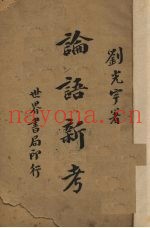 劉光宇署
論語新考
世界書局印行
nayona.cn